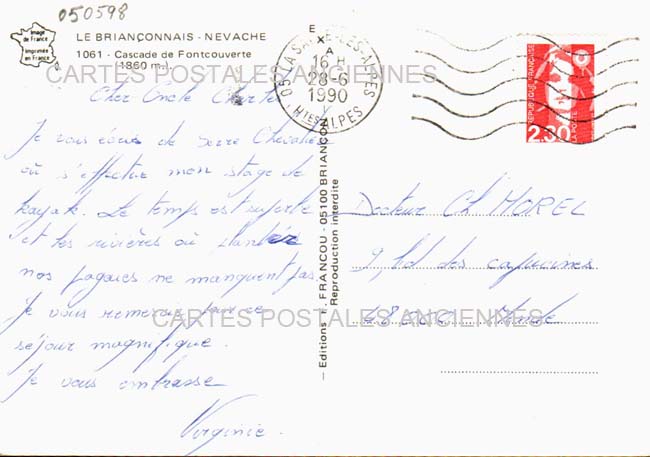 050598
Image
de France
Imprimée
en France
LE BRIANÇONNAIS - NEVACHE
1061 - Cascade de Fontcouverte
(1860 m.)
CARTES POSTALES ANCIENNES
05 LA SALLE-LES-ALPES
16 H
28-6
1990
Htes ALPES
RÉPUBLIQUE FRANÇAISE
2,30
LA POSTE
Cher Oncle Charles
Je vous écris de Serre Chevalier
où s'effectue mon stage de
kayak. Le temps est superbe
et les rivières où
nos pagaies ne manquent pas.
Je vous remercie pour ce
séjour magnifique.
Je vous embrasse
Virginie.
Editions F. FRANCOU - 05100 BRIANÇON
Reproduction interdite
Docteur Ch MOREL
9, bd des capucines
48000 Mende
CARTES POSTALES ANCIENNES